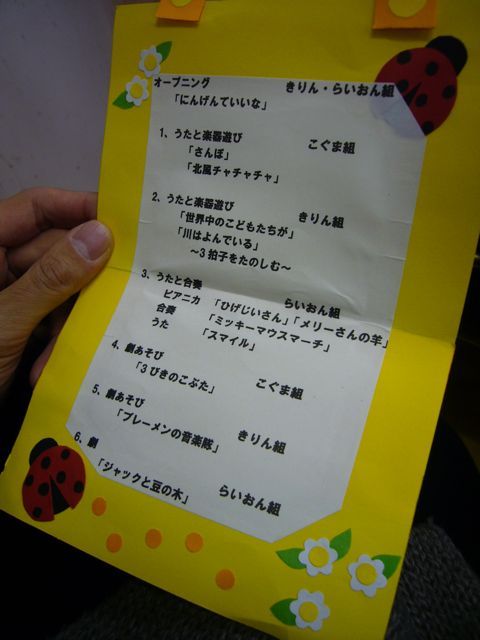 オープニング　きりん・らいおん組
「にんげんていいな」
1、うたと楽器遊び　こぐま組
「さんぽ」
「北風チャチャチャ」
2、うたと楽器遊び　きりん組
「世界中のこどもたちが」
「川はよんでいる」
～3拍子をたのしむ～
3、うたと合奏　らいおん組
ピアニカ　「ひげじいさん」「メリーさんの羊」
合奏　「ミッキーマウスマーチ」
うた　「スマイル」
4、劇あそび　こぐま組
「3びきのこぶた」
5、劇あそび　きりん組
「ブレーメンの音楽隊」
6、劇　らいおん組
「ジャックと豆の木」